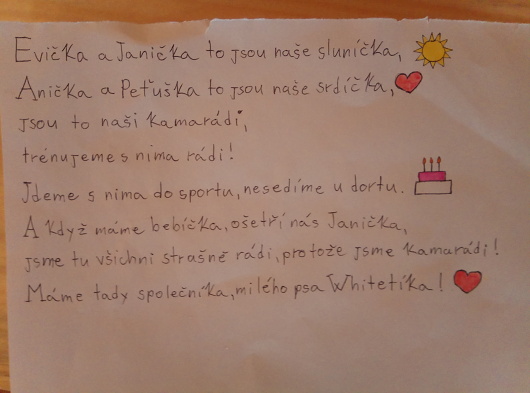 Evička a Janička to jsou naše sluníčka,
Anička a Peťuška to jsou naše srdíčka,
jsou to naši kamarádi,
trénujeme s nima rádi!
Jdeme s nima do sportu, nesedíme u dortu.
A když máme bebíčka, ošetří nás Janička,
jsme tu všichni strašně rádi, protože jsme kamarádi!
Máme tady společníka, milého psa Whitetíka!